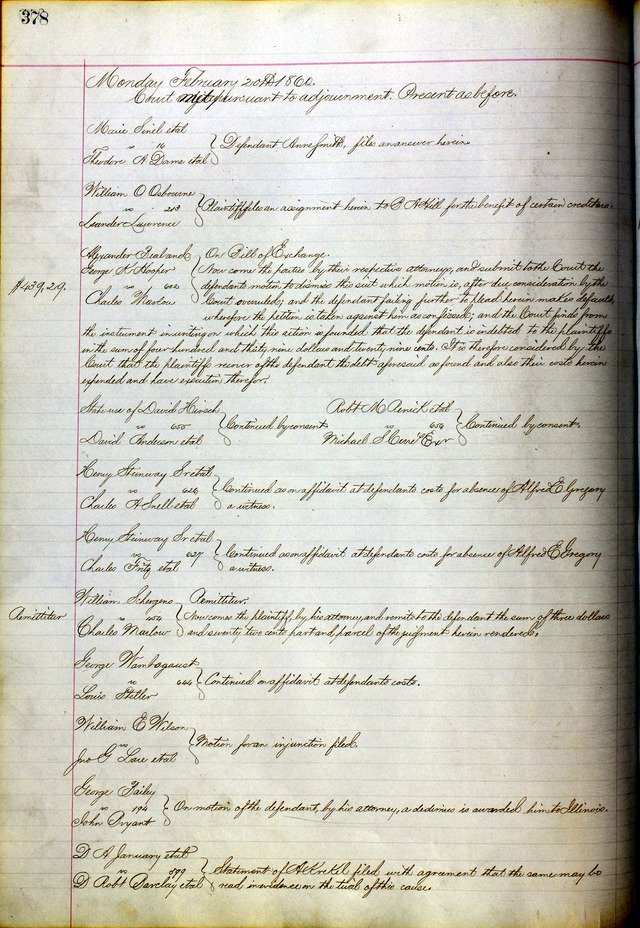 378
Monday February 20th 1860.
Court met pursuant to adjournment. Present as before.
Marie Sinel etal
vs 16
Theodore A Dame etal
Defendant Anne Smith, files an answer herein
William O Osbourne
vs 213
Leander Lawrence
Plaintiff files an assignment herein to Hill for the benefit of certain creditors.
Alexander
George H Hooper
vs 602
Charles Marlow
$439,29.
On Bill of Exchange.
Now come the parties by their respective attorneys, and submit to the Court the
defendants motion to dismiss this suit which motion is, after due consideration by the
Court overruled; and the defendant failing further to plead herein makes default
wherefore the petition is taken against him as confessed; and the Court finds from
the instrument in writing on which the action is founded, that the defendant is indebted to the plaintiffs
in the sum of four hundred and thirty nine dollars and twenty nine cents. It is therefore considered by the
Court that the plaintiffs recover of the defendant the debt aforesaid as found and also their costs herein
expended and have execution therefor.
State use of David Hirsch
vs 655
David Anderson etal
Continued by consent
Robt M Renick etal
vs 659
Michael S Exor
Continued by consent.
Henry Steinway Sr etal
vs 626
Charles A Snell etal
Continued as on affidavit at defendants costs for absence of Alfred E Gregory
a witness.
Henry Steinway Sr etal
vs 627
Charles Fritz etal
Continued as on affidavit at defendants costs for absence of Alfred E Gregory
a witness.
Remittitur
William Schergens
vs
Charles Marlow
Remittitur.
Now comes the plaintiff, by his attorney, and remits to the defendant the sum of three dollars
and seventy two cents part and parcel of the judgment herein rendered.
George Wambagaust
vs 644
Louis Stetler
Continued on affidavit at defendants costs.
William E Wilson
vs
Jno G etal
Motion for an injunction filed.
George Bailey
vs 194
John Bryant
On motion of the defendant, by his attorney, a dedimus is awarded him to Illinois.
D A January etal
vs 599
D Robt Barclay etal
Statement of A Krekel filed with agreement that the same may be
read in evidence on the trial of this cause.